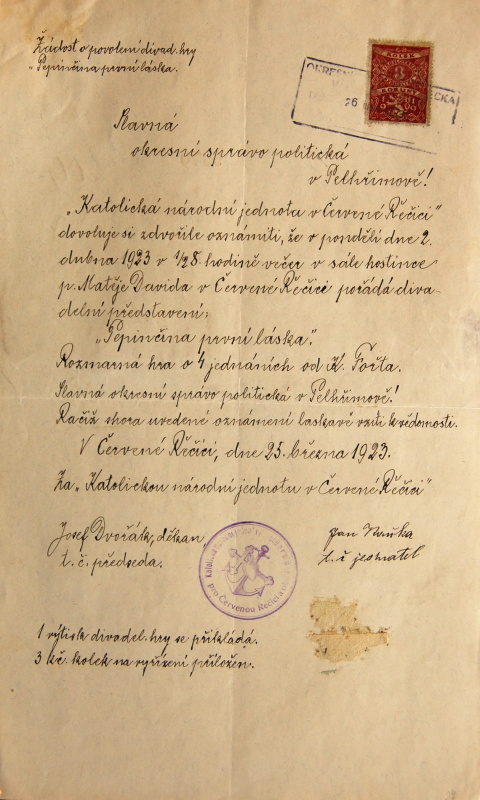 Žádost o povolení divad. hry
„Pepinčina první láska.
KOLEK
3
KORUNY
OKRESNÍ
26
Slavná
okresní správo politická
v Pelhřimově!
„Katolická národní jednota v Červené Řečici"
dovoluje si zdvořile oznámiti, že v pondělí dne 2.
dubna 1923 v 1/2 8. hodině večer v sále hostince
p. Matěje Davida v Červené Řečici pořádá diva-
delní představení:
„Pepinčina první láska".
Rozmarná hra o 4 jednáních od K. Fořta.
Slavná okresní správo politická v Pelhřimově!
Račiž shora uvedené oznámení laskavě vzíti k vědomosti.
V Červené Řečici, dne 25. března 1923.
Za „Katolickou národní jednotu v Červené Řečici"
Josef Dvořák, děkan,
t. č. předseda.
Jan
t. č. jednatel
pro Červenou Řečici a
1 výtisk divadel. hry se přikládá.
3 Kč. kolek na vyřízení přiložen.